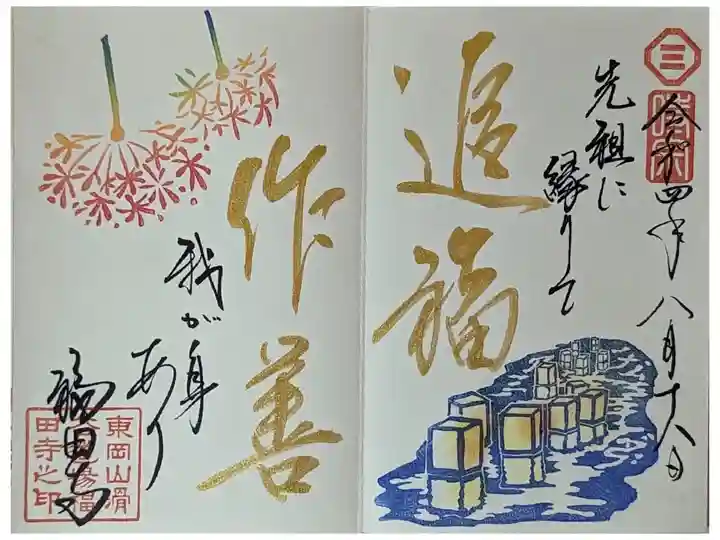 三
令和四年八月十八日
先祖に
縁りて
追福
作善
我が身
あり
福田寺
東岡山滑
田寺之印